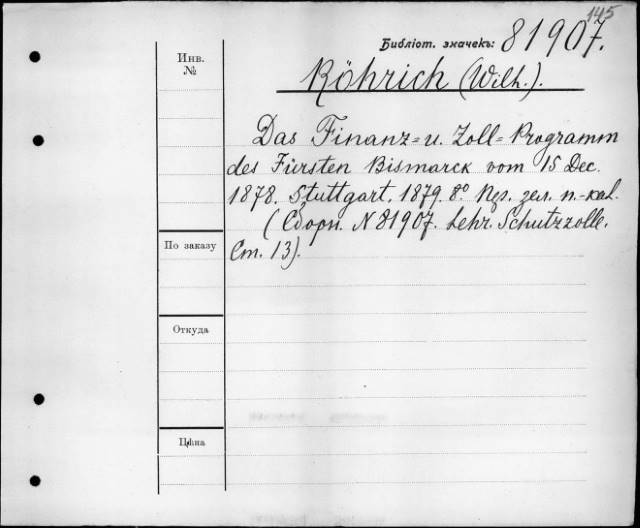 145
Библіот. значекъ: 81907.
Инв.
№
Röhrich (Wilh.).
Das Finanz- u. Zoll-Programm
des Fürsten Bismarck vom 15 Dec.
1878. Stuttgart. 1879. 8º зел. п.-кал.
(Сборн. № 81907. Schutzzoll.
Ст. 13).
По заказу
Откуда
Цѣна